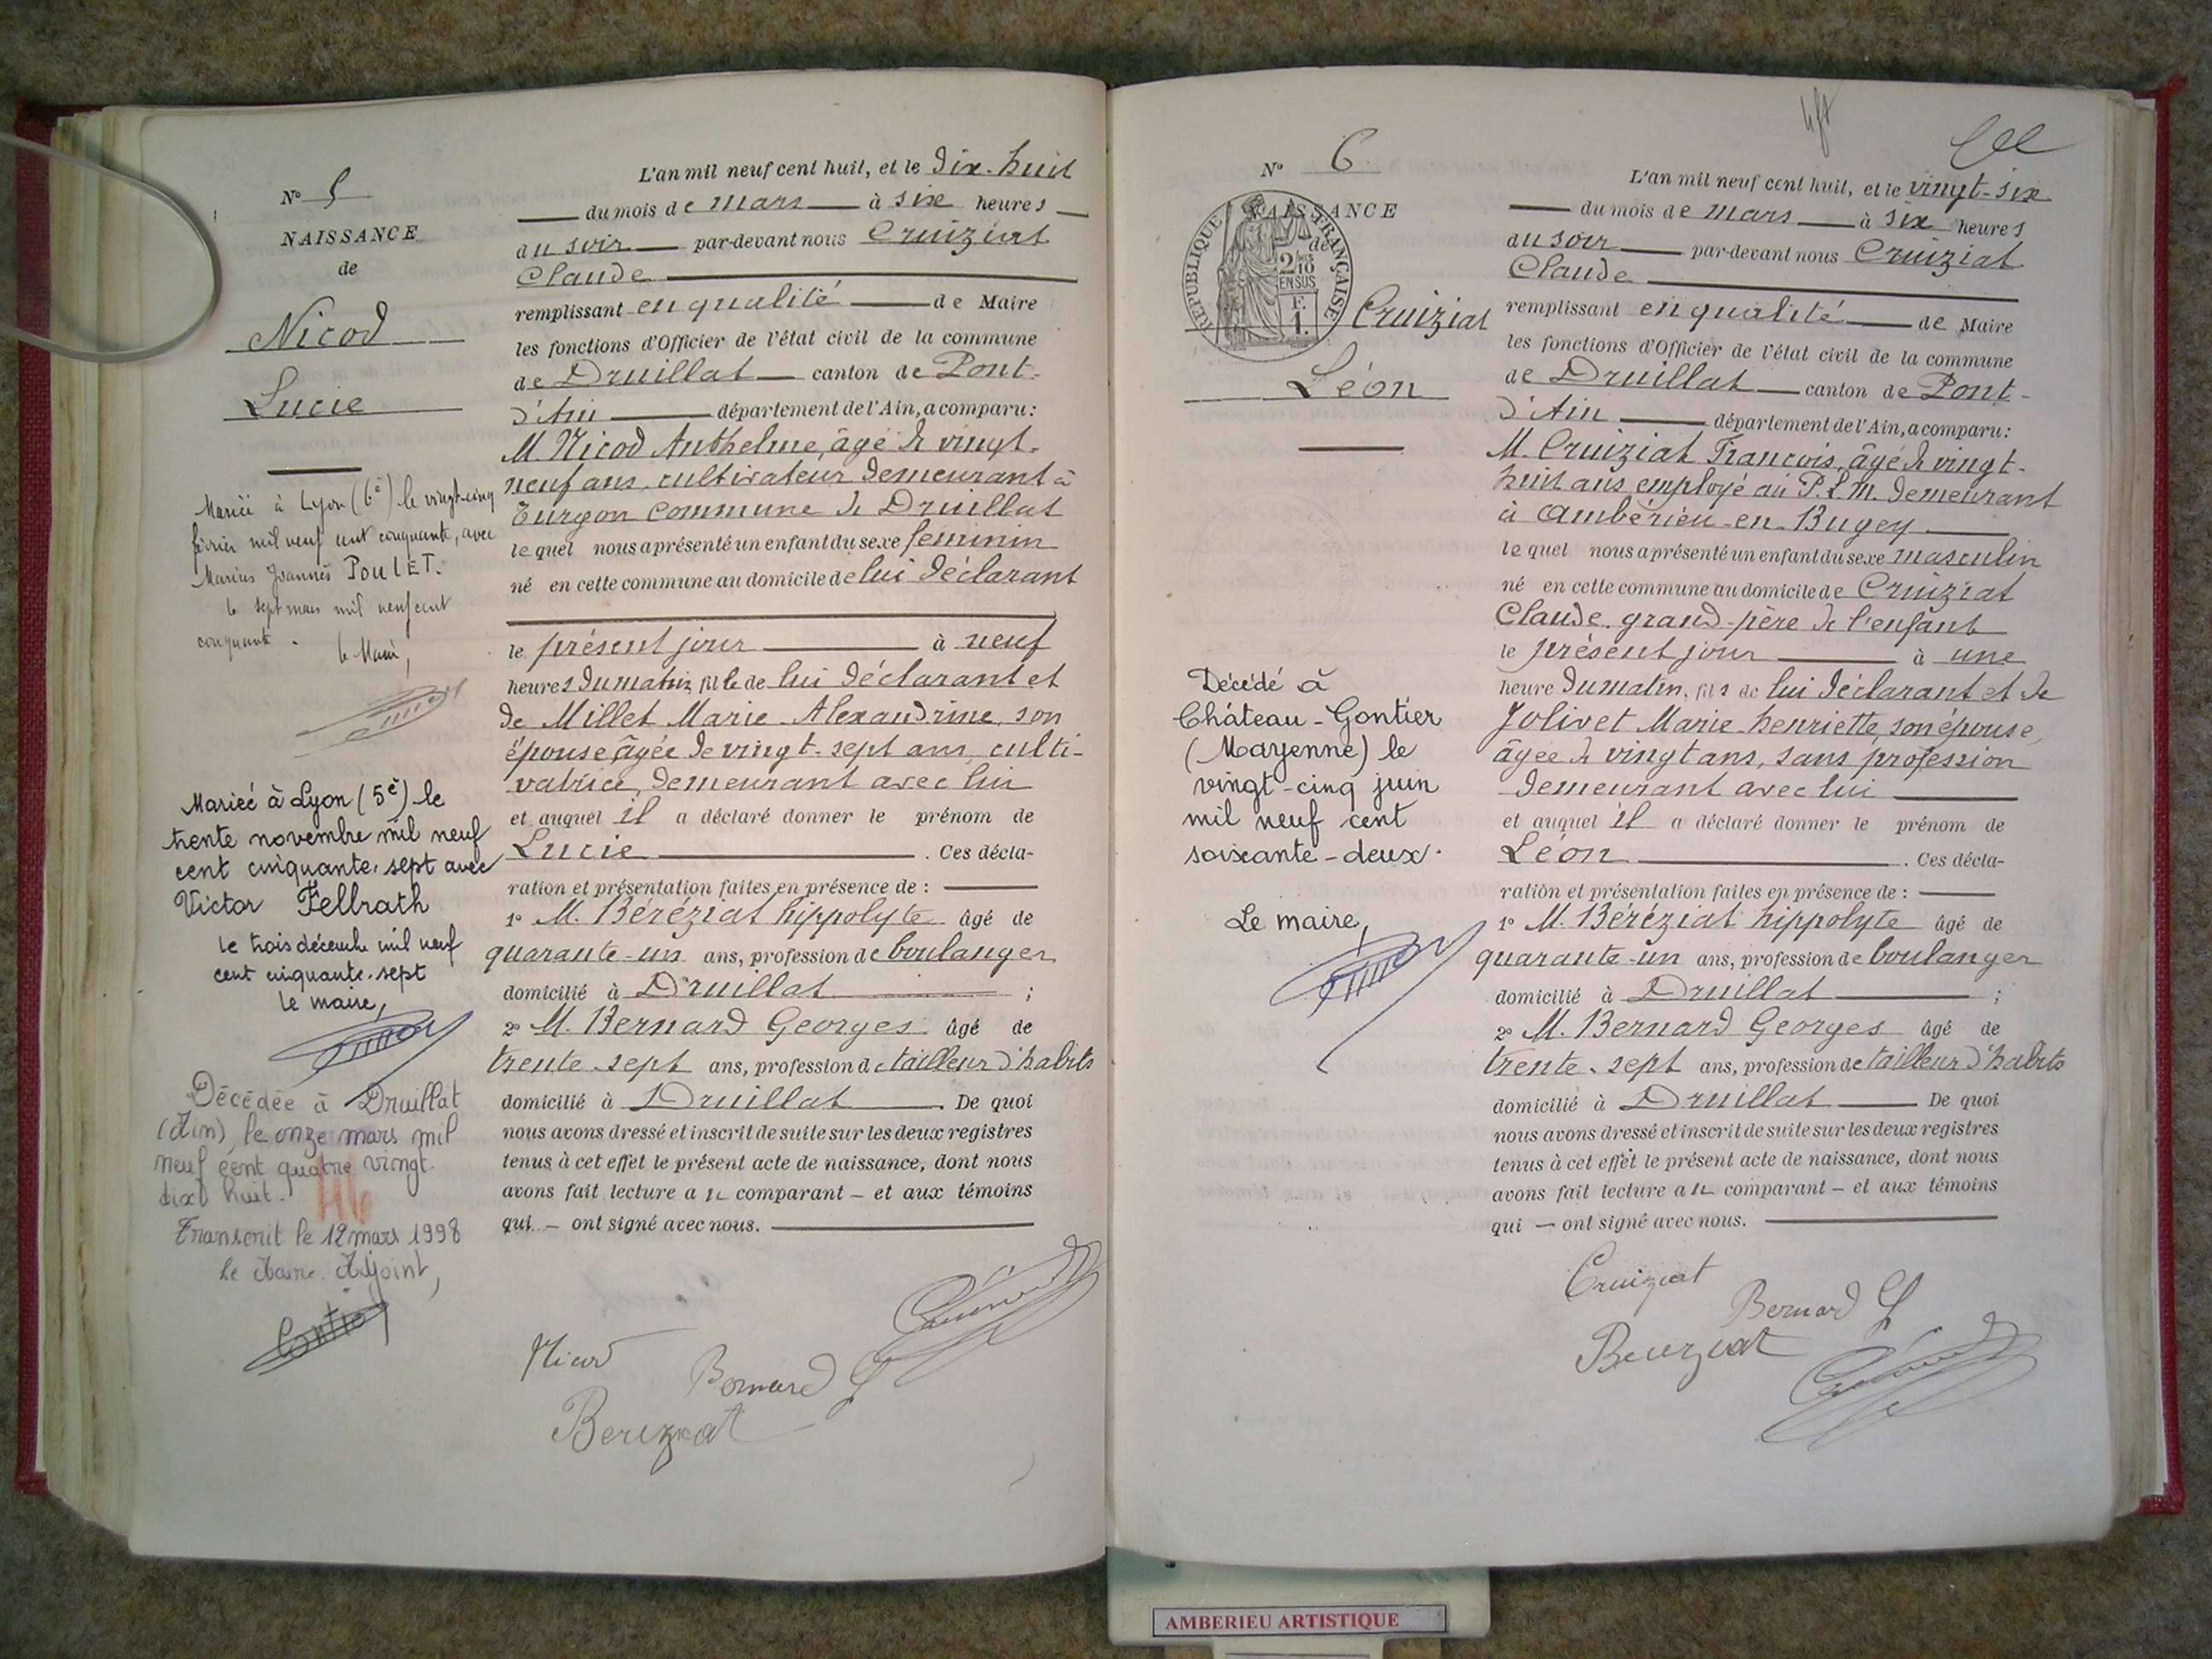 N° 5
NAISSANCE
de
Nicod
Lucie
Mariée à Lyon (6e) le vingt-cinq
février mil neuf cent cinquante, avec
Marius Joannès POULET.
le sept mars mil neuf cent
cinquante.
le Maire,
Mariée à Lyon (5e) le
trente novembre mil neuf
cent cinquante-sept avec
Victor Fellrath
le trois décembre mil neuf
cent cinquante-sept
le maire,
Décédée à Druillat
(Ain), le onze mars mil
neuf cent quatre vingt.
dix huit.
Transcrit le 12 mars 1998
le Maire Adjoint,
L'an mil neuf cent huit, et le dix-huit
du mois de mars à six heures
du soir par-devant nous Cruiziat
Claude
remplissant en qualité de Maire
les fonctions d'Officier de l'état civil de la commune
de Druillat canton de Pont-
d'Ain département de l'Ain, a comparu:
M. Nicod Anthelme, âgé de vingt-
neuf ans, cultivateur demeurant à
Turgon commune de Druillat
lequel nous a présenté un enfant du sexe féminin
né en cette commune au domicile de lui déclarant
le présent jour à neuf
heures du matin, fille de lui déclarant et
de Millet Marie-Alexandrine, son
épouse âgée de vingt-sept ans, culti-
vatrice, demeurant avec lui
et auquel il a déclaré donner le prénom de
Lucie. Ces décla-
ration et présentation faites en présence de :
1° M. Béréziat hippolyte âgé de
quarante-un ans, profession de boulanger
domicilié à Druillat ;
2° M. Bernard Georges âgé de
trente-sept ans, profession de tailleur d'habits
domicilié à Druillat. De quoi
nous avons dressé et inscrit de suite sur les deux registres
tenus à cet effet le présent acte de naissance, dont nous
avons fait lecture au comparant – et aux témoins
qui – ont signé avec nous.
Nicod
Bernard G
Bereziat
N° 6
NAISSANCE
de
REPUBLIQUE FRANÇAISE
2/10
EN SUS
F.
1.
Cruiziat
Léon
Décédé à
Château-Gontier
(Mayenne) le
vingt-cinq juin
mil neuf cent
soixante-deux.
Le maire,
L'an mil neuf cent huit, et le vingt-six
du mois de mars à six heures
du soir par-devant nous Cruiziat
Claude
remplissant en qualité de Maire
les fonctions d'Officier de l'état civil de la commune
de Druillat canton de Pont-
d'Ain département de l'Ain, a comparu:
M. Cruiziat François, âgé de vingt-
huit ans employé au P.L.M. demeurant
à Ambérieu-en-Bugey
lequel nous a présenté un enfant du sexe masculin
né en cette commune au domicile de Cruiziat
Claude, grand-père de l'enfant
le présent jour à une
heure du matin, fils de lui déclarant et de
Jolivet Marie-henriette, son épouse,
âgée de vingt ans, sans profession
demeurant avec lui
et auquel il a déclaré donner le prénom de
Léon. Ces décla-
ration et présentation faites en présence de :
1° M. Béréziat hippolyte âgé de
quarante-un ans, profession de boulanger
domicilié à Druillat ;
2° M. Bernard Georges âgé de
trente-sept ans, profession de tailleur d'habits
domicilié à Druillat De quoi
nous avons dressé et inscrit de suite sur les deux registres
tenus à cet effet le présent acte de naissance, dont nous
avons fait lecture au comparant – et aux témoins
qui – ont signé avec nous.
Cruiziat
Bernard G
Bereziat
AMBERIEU ARTISTIQUE